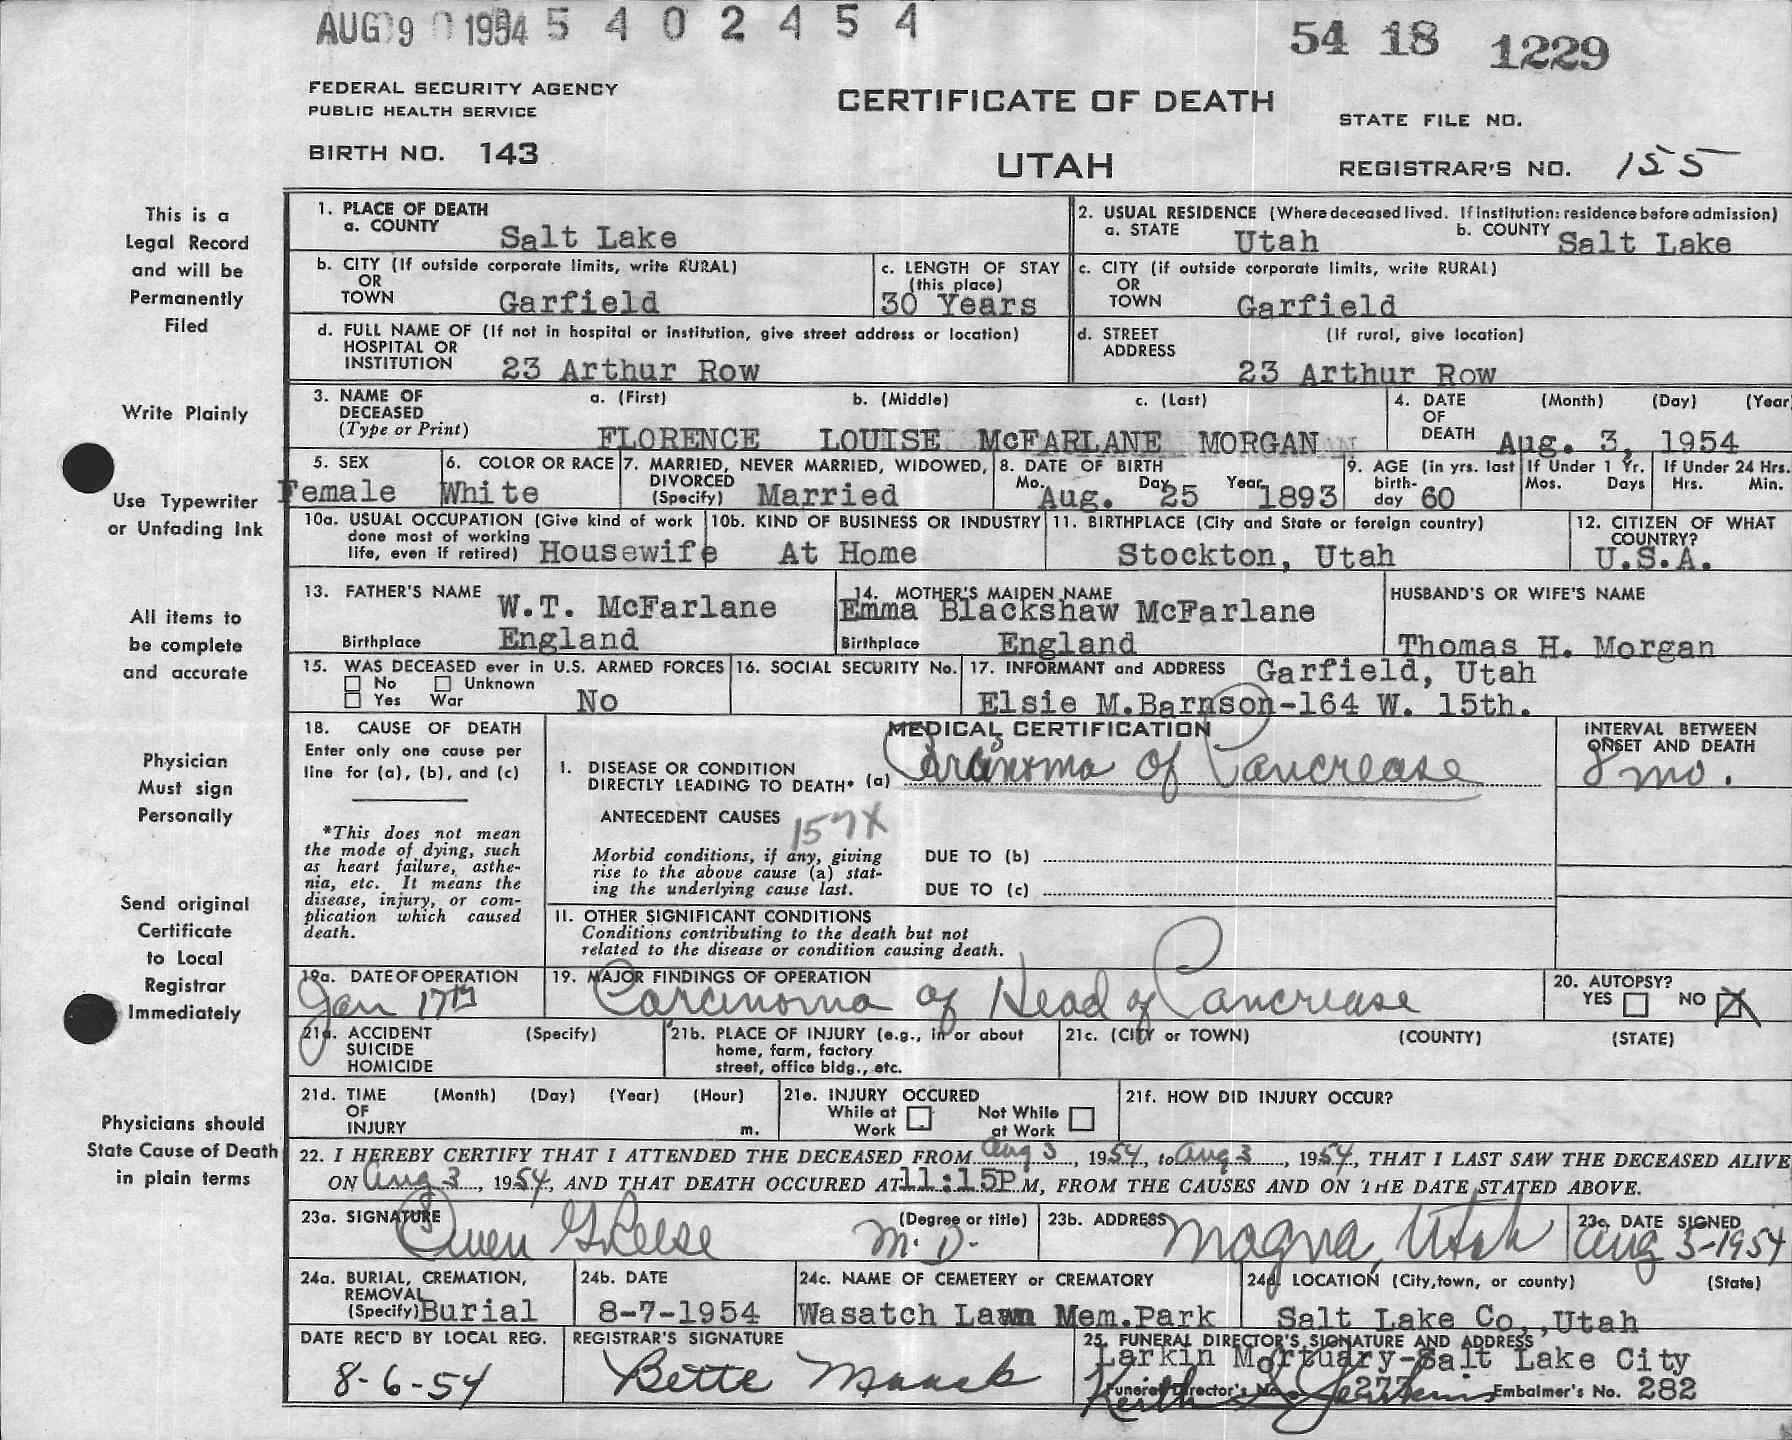 AUG 9 1954 5 4 0 2 4 5 4
54 18 1229
FEDERAL SECURITY AGENCY
PUBLIC HEALTH SERVICE
CERTIFICATE OF DEATH
STATE FILE NO.
BIRTH NO. 143
UTAH
REGISTRAR'S NO. 155
This is a
Legal Record
and will be
Permanently
Filed
Write Plainly
Use Typewriter
or Unfading Ink
All items to
be complete
and accurate
Physician
Must sign
Personally
Send original
Certificate
to Local
Registrar
Immediately
Physicians should
State Cause of Death
in plain terms
1. PLACE OF DEATH
a. COUNTY Salt Lake
2. USUAL RESIDENCE (Where deceased lived. If institution: residence before admission)
a. STATE Utah b. COUNTY Salt Lake
b. CITY (If outside corporate limits, write RURAL)
OR
TOWN Garfield
c. LENGTH OF STAY
(this place)
30 Years
c. CITY (if outside corporate limits, write RURAL)
OR
TOWN Garfield
d. FULL NAME OF (If not in hospital or institution, give street address or location)
HOSPITAL OR
INSTITUTION 23 Arthur Row
d. STREET (If rural, give location)
ADDRESS
23 Arthur Row
3. NAME OF a. (First) b. (Middle) c. (Last)
DECEASED
(Type or Print)
FLORENCE LOUISE McFARLANE MORGAN
4. DATE (Month) (Day) (Year
OF
DEATH Aug. 3, 1954
5. SEX
Female
6. COLOR OR RACE
White
7. MARRIED, NEVER MARRIED, WIDOWED,
DIVORCED
(Specify) Married
8. DATE OF BIRTH
Mo. Day Year
Aug. 25 1893
9. AGE (in yrs. last
birth-
day 60
If Under 1 Yr.
Mos. Days
If Under 24 Hrs.
Hrs. Min.
10a. USUAL OCCUPATION (Give kind of work
done most of working
life, even if retired) Housewife
10b. KIND OF BUSINESS OR INDUSTRY
At Home
11. BIRTHPLACE (City and State or foreign country)
Stockton, Utah
12. CITIZEN OF WHAT
COUNTRY?
U.S.A.
13. FATHER'S NAME W.T. McFarlane
Birthplace England
14. MOTHER'S MAIDEN NAME
Emma Blackshaw McFarlane
Birthplace England
HUSBAND'S OR WIFE'S NAME
Thomas H. Morgan
15. WAS DECEASED ever in U.S. ARMED FORCES
No Unknown
Yes War No
16. SOCIAL SECURITY No.
17. INFORMANT and ADDRESS Garfield, Utah
Elsie M.Barnson-164 W. 15th.
18. CAUSE OF DEATH
Enter only one cause per
line for (a), (b), and (c)
*This does not mean
the mode of dying, such
as heart failure, asthe-
nia, etc. It means the
disease, injury, or com-
plication which caused
death.
MEDICAL CERTIFICATION
I. DISEASE OR CONDITION
DIRECTLY LEADING TO DEATH* (a) Carcinoma of Pancrease
INTERVAL BETWEEN
ONSET AND DEATH
8 mo.
ANTECEDENT CAUSES 157X
Morbid conditions, if any, giving
rise to the above cause (a) stat-
ing the underlying cause last.
DUE TO (b)
DUE TO (c)
II. OTHER SIGNIFICANT CONDITIONS
Conditions contributing to the death but not
related to the disease or condition causing death.
19a. DATE OF OPERATION
Jan 17th
19. MAJOR FINDINGS OF OPERATION
Carcinoma of Head of Pancrease
20. AUTOPSY?
YES NO X
21a. ACCIDENT (Specify)
SUICIDE
HOMICIDE
21b. PLACE OF INJURY (e.g., in or about
home, farm, factory
street, office bldg., etc.
21c. (CITY or TOWN) (COUNTY) (STATE)
21d. TIME (Month) (Day) (Year) (Hour)
OF
INJURY m.
21e. INJURY OCCURED
While at Work Not While at Work
21f. HOW DID INJURY OCCUR?
22. I HEREBY CERTIFY THAT I ATTENDED THE DECEASED FROM Aug 3, 1954, to Aug 3, 1954, THAT I LAST SAW THE DECEASED ALIVE
ON Aug 3, 1954, AND THAT DEATH OCCURED AT 11:15P M, FROM THE CAUSES AND ON THE DATE STATED ABOVE.
23a. SIGNATURE (Degree or title)
Owen G Reese M.D.
23b. ADDRESS
Magna, Utah
23c. DATE SIGNED
Aug 5-1954
24a. BURIAL, CREMATION,
REMOVAL
(Specify) Burial
24b. DATE
8-7-1954
24c. NAME OF CEMETERY or CREMATORY
Wasatch Lawn Mem.Park
24d. LOCATION (City,town, or county) (State)
Salt Lake Co.,Utah
DATE REC'D BY LOCAL REG.
8-6-54
REGISTRAR'S SIGNATURE
Bette
25. FUNERAL DIRECTOR'S SIGNATURE AND ADDRESS
Larkin Mortuary-Salt Lake City
Funeral Director's No. 277 Embalmer's No. 282
Keith S Jenkins